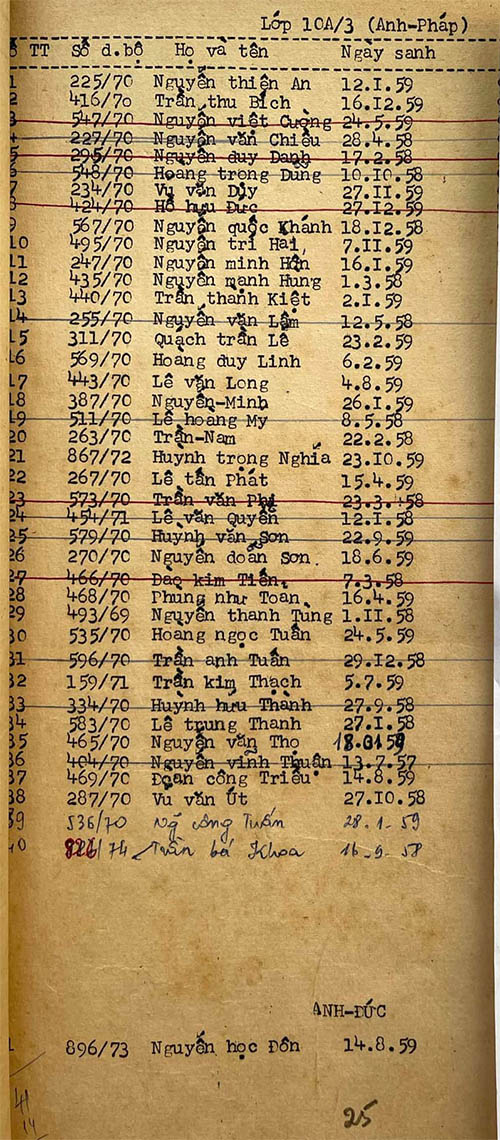 Lớp 10A/3 (Anh-Pháp)
TT Số d.bộ Họ và tên Ngày sanh
1 225/70 Nguyễn thiện An 12.I.59
2 416/70 Trần thu Bích 16.I2.59
3 547/70 Nguyễn việt Cường 24.5.59
4 227/70 Nguyễn văn Chiểu 28.4.58
5 295/70 Nguyễn duy Danh 17.2.58
6 548/70 Hoàng trọng Dũng 10.I0.58
7 234/70 Vũ văn Dũy 27.II.59
8 424/70 Hồ hữu Đức 27.I2.59
9 567/70 Nguyễn quốc Khánh 18.I2.58
10 495/70 Nguyễn trí Hải 7.II.59
11 247/70 Nguyễn minh Hớn 16.I.59
12 435/70 Nguyễn mạnh Hùng 1.3.58
13 440/70 Trần thanh Kiệt 2.I.59
14 255/70 Nguyễn văn Lắm 12.5.58
15 311/70 Quách trần Lê 23.2.59
16 569/70 Hoàng duy Linh 6.2.59
17 443/70 Lê văn Long 4.8.59
18 387/70 Nguyễn-Minh 26.I.59
19 511/70 Lê hoàng My 8.5.58
20 263/70 Trần-Nam 22.2.58
21 867/72 Huỳnh trọng Nghĩa 23.I0.59
22 267/70 Lê tấn Phát 15.4.59
23 573/70 Trần văn Phi 23.3.58
24 454/71 Lê văn Quyền 12.I.58
25 579/70 Huỳnh văn Sơn 22.9.59
26 270/70 Nguyễn doãn Sơn 18.6.59
27 466/70 Đào kim Tiến 7.3.58
28 468/70 Phùng như Toàn 16.4.59
29 493/69 Nguyễn thanh Tùng 1.II.58
30 535/70 Hoàng ngọc Tuấn 24.5.59
31 596/70 Trần anh Tuấn 29.I2.58
32 159/71 Trần kim Thạch 5.7.59
33 334/70 Huỳnh hữu Thành 27.9.58
34 583/70 Lê trung Thành 27.I.58
35 465/70 Nguyễn văn Thọ 18.0159
36 404/70 Nguyễn vĩnh Thuận 13.7.57
37 469/70 Đoàn công Triều 14.8.59
38 287/70 Vũ văn Út 27.I0.58
39 536/70 Ng̃ công Tuấn 28.1.59
40 /74 Trần bá Khoa 16.9.58
ANH-ĐỨC
1 896/73 Nguyễn học Đôn 14.8.59
41
14
25